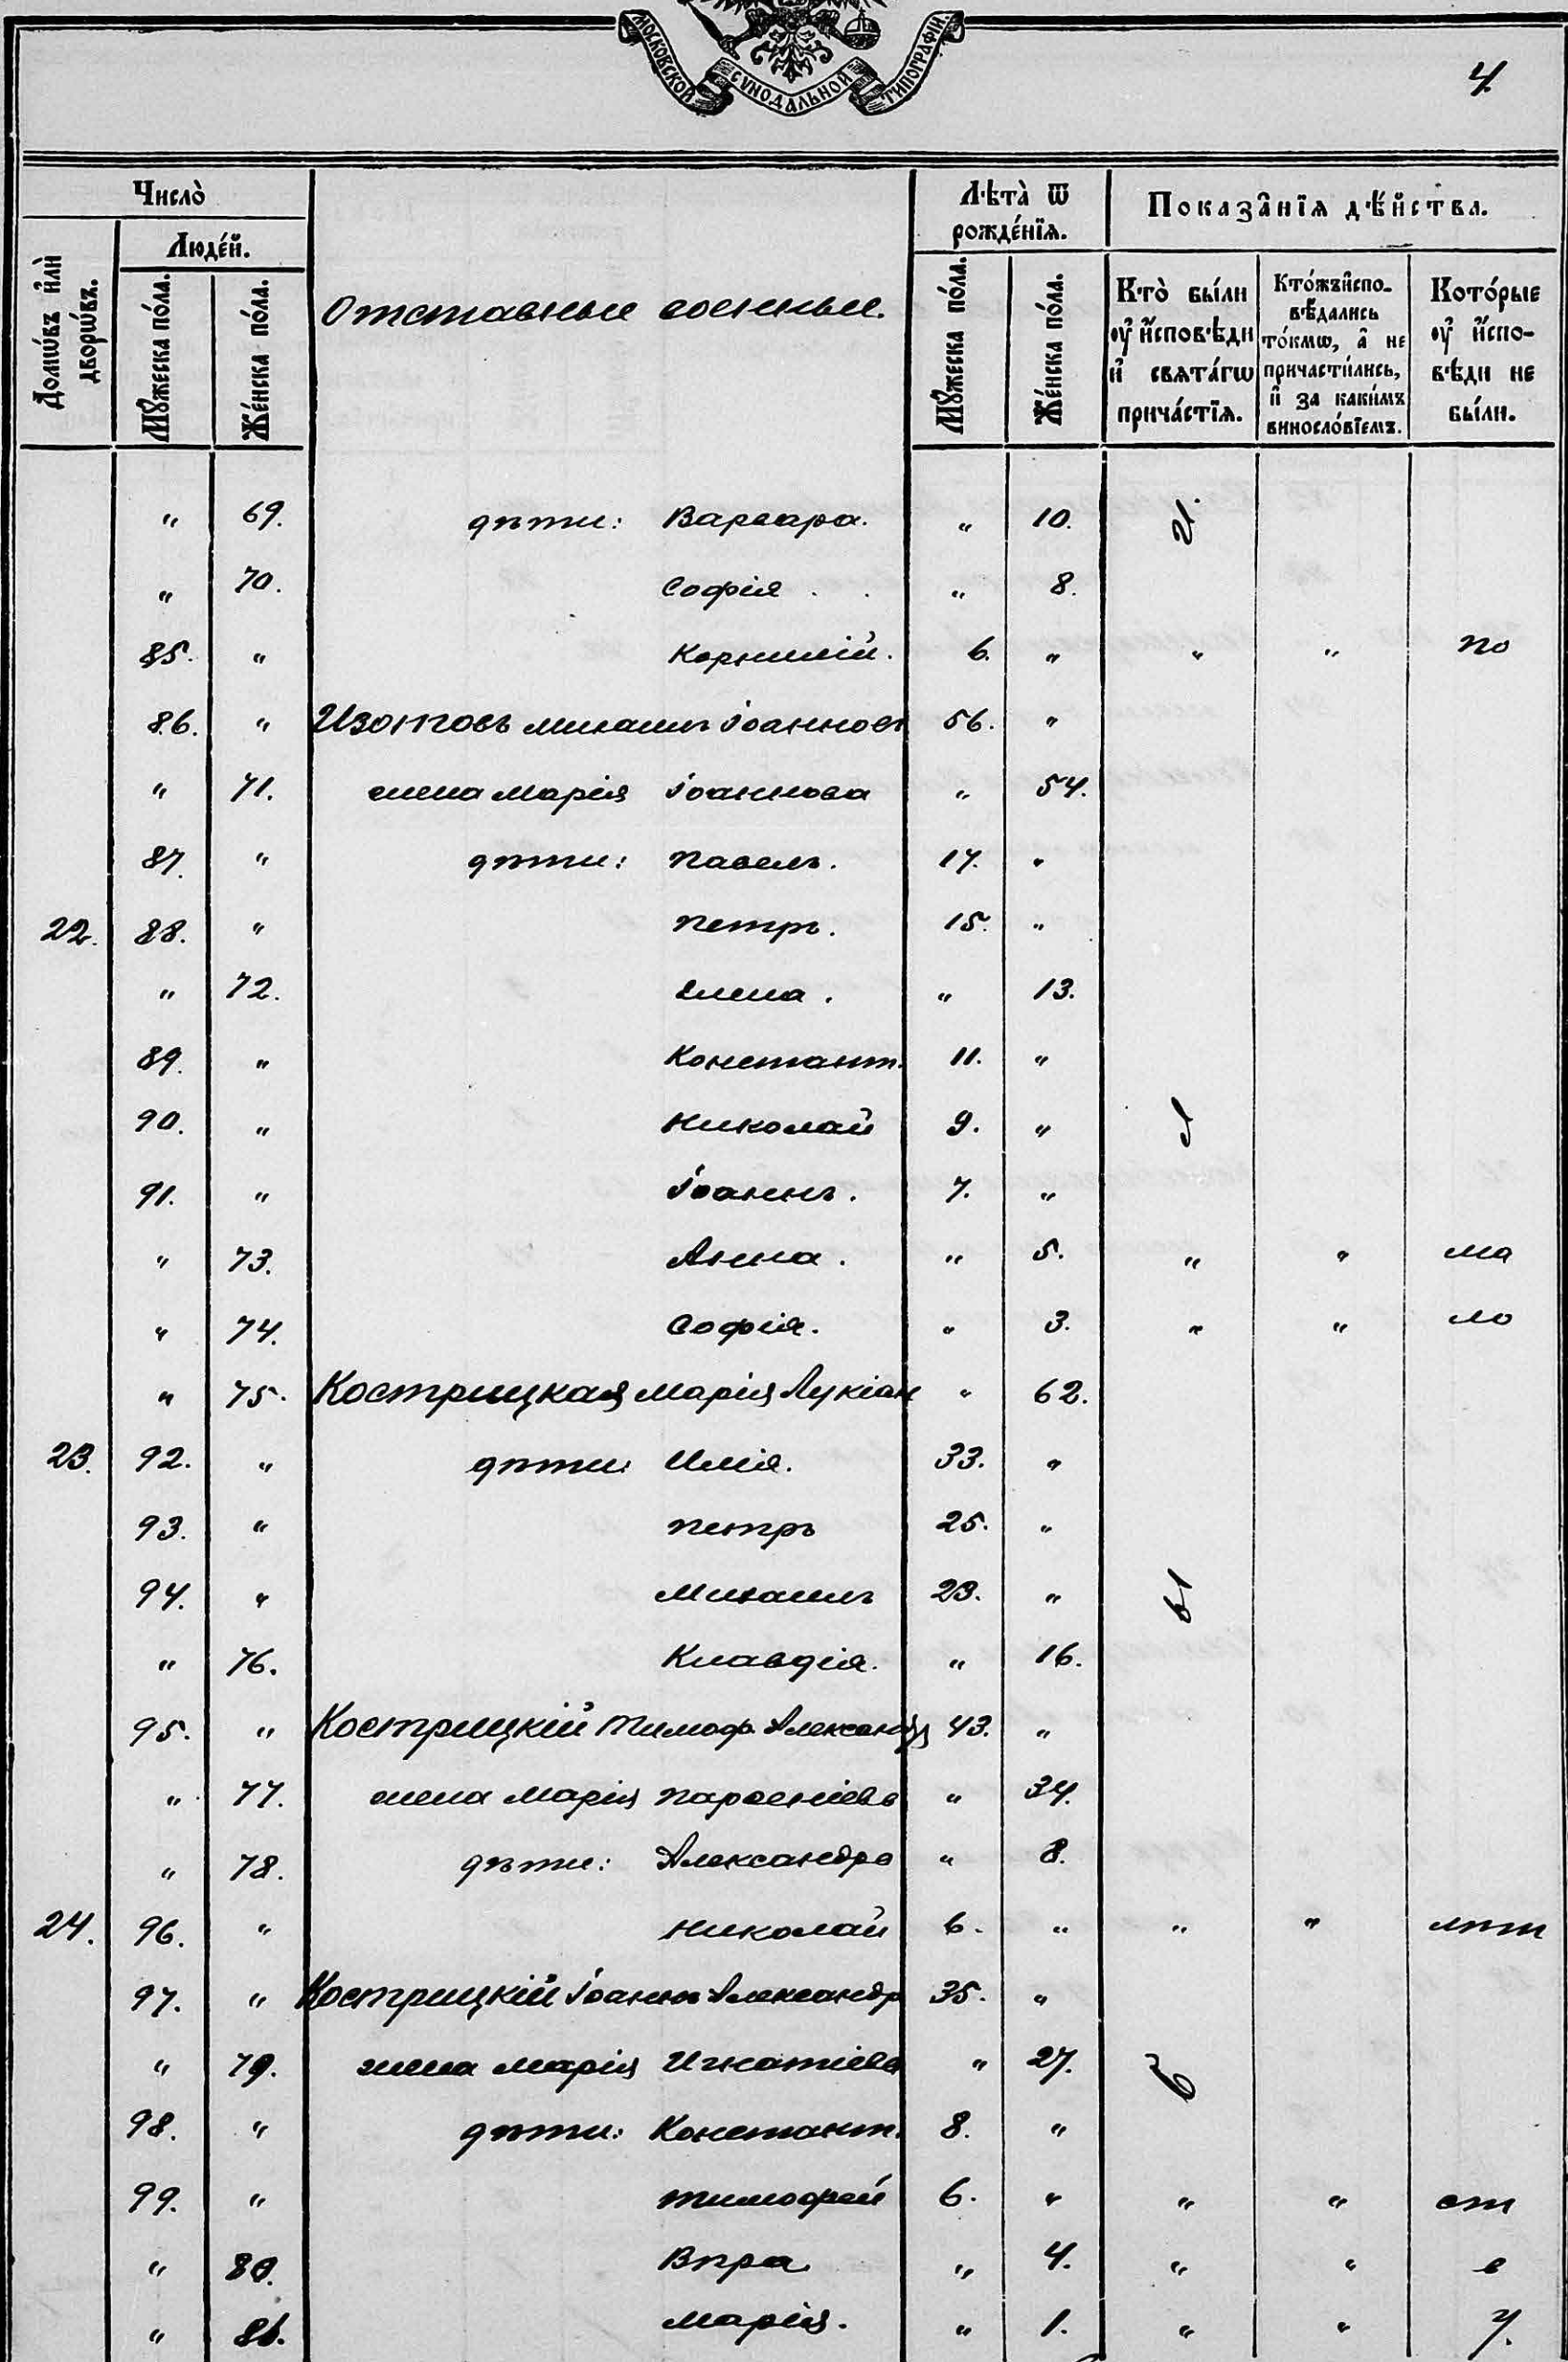 МОСКОВСКОЙ СѴНОДАЛЬНОЙ ТИПОГРАФІИ.
4.
Число̀
Лѣта̀ ѿ рожде́нїѧ.
Показа̑нїѧ дѣ́йства.
Домѡ́въ и҆лѝ дворѡ́въ.
Люде́й.
Мꙋ́жеска по́ла.
Же́нска по́ла.
Отставные военные.
Мꙋ́жеска по́ла.
Же́нска по́ла.
Кто̀ бы́ли оу҆ и҆́сповѣди и҆ свѧта́гѡ прича́стїѧ.
Кто́жъ и҆сповѣ́дались то́кмѡ, а҆ не причасти́лись, и҆ за каки́мъ виносло́вїемъ.
Кото́рые оу҆ и҆́сповѣди не бы́ли.
„ 69. дѣти: Варвара. „ 10.
„ 70. Софія „ 8.
85. „ Корнилій. 6. „ „ „ по
86. „ Изонтовъ Михаилъ Іоанновъ 56. „
„ 71. жена Марія Іоаннова „ 54.
87. „ дѣти: Павелъ. 17. „
22. 88. „ Петръ. 15. „
„ 72. Елена. „ 13.
89. „ Констант. 11. „
90. „ Николай 9. „
91. „ Іоаннъ. 7. „
„ 73. Анна. „ 5. „ „ ма
„ 74. Софія. „ 3. „ „ ло
„ 75. Кострицкая Марія Лукіан „ 62.
23. 92. „ дѣти: Илія. 33. „
93. „ Петръ 25. „
94. „ Михаилъ 23. „
„ 76. Клавдія. „ 16.
95. „ Кострицкій Тимоф. Александр 43. „
„ 77. жена Марія Парѳеніева „ 34.
„ 78. дѣти: Александра „ 8.
24. 96. „ Николай 6. „ „ „ лѣт
97. „ Кострицкій Іоаннъ Александр 35. „
„ 79. жена Марія Игнатіева „ 27.
98. „ дѣти: Константн. 8. „
99. „ Тимофей 6. „ „ „ ст
„ 80. Вѣра „ 4. „ „ в
„ 81. Марія. „ 1. „ „ у.